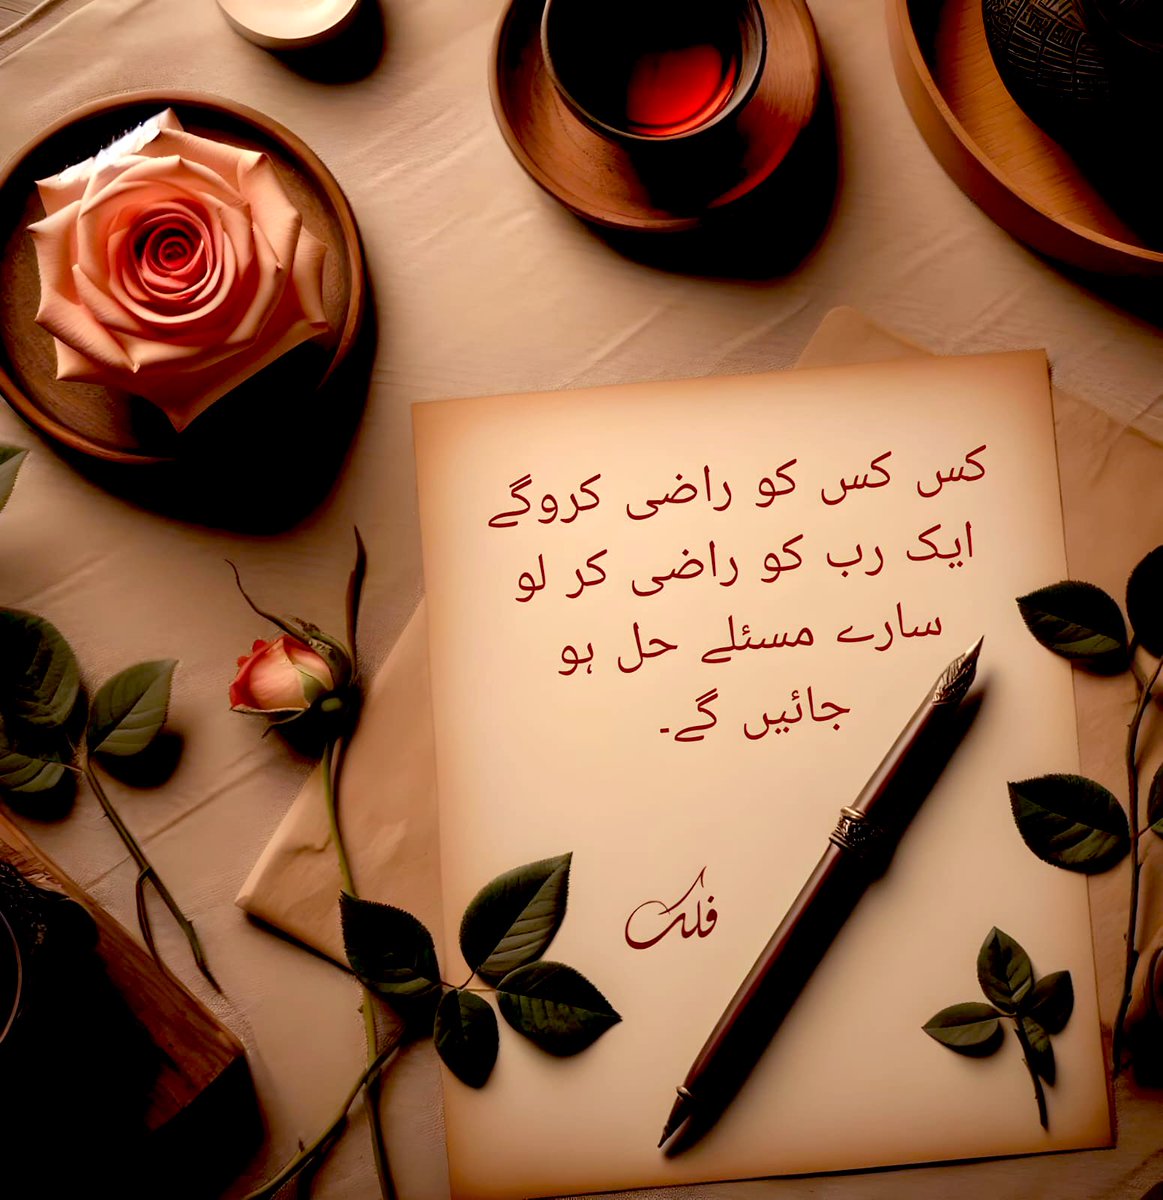 کس کس کو راضی کروگے
ایک رب کو راضی کر لو
سارے مسئلے حل ہو
جائیں گے۔
فلک